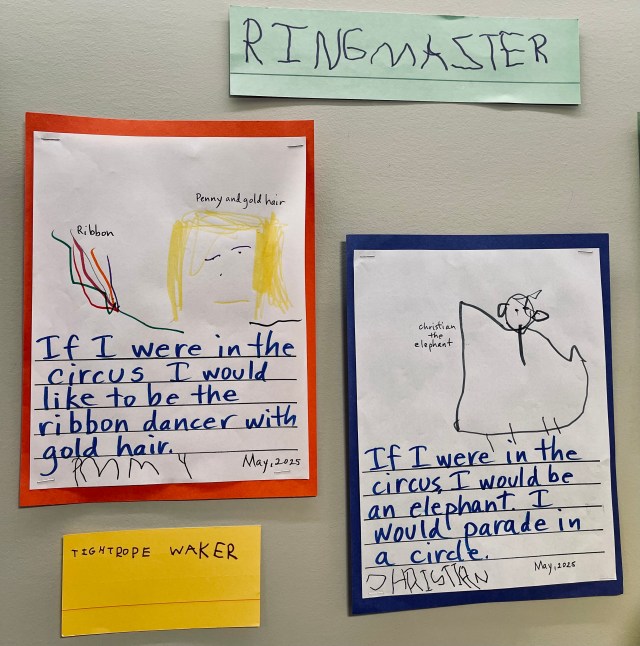 RINGMASTER
Penny and gold hair
Ribbon
If I were in the
circus I would
like to be the
ribbon dancer with
gold hair.
May, 2025
TIGHTROPE WAKER
christian
the
elephant
If I were in the
circus, I would be
an elephant. I
would parade in
a circle.
CHRISTIAN
May, 2025